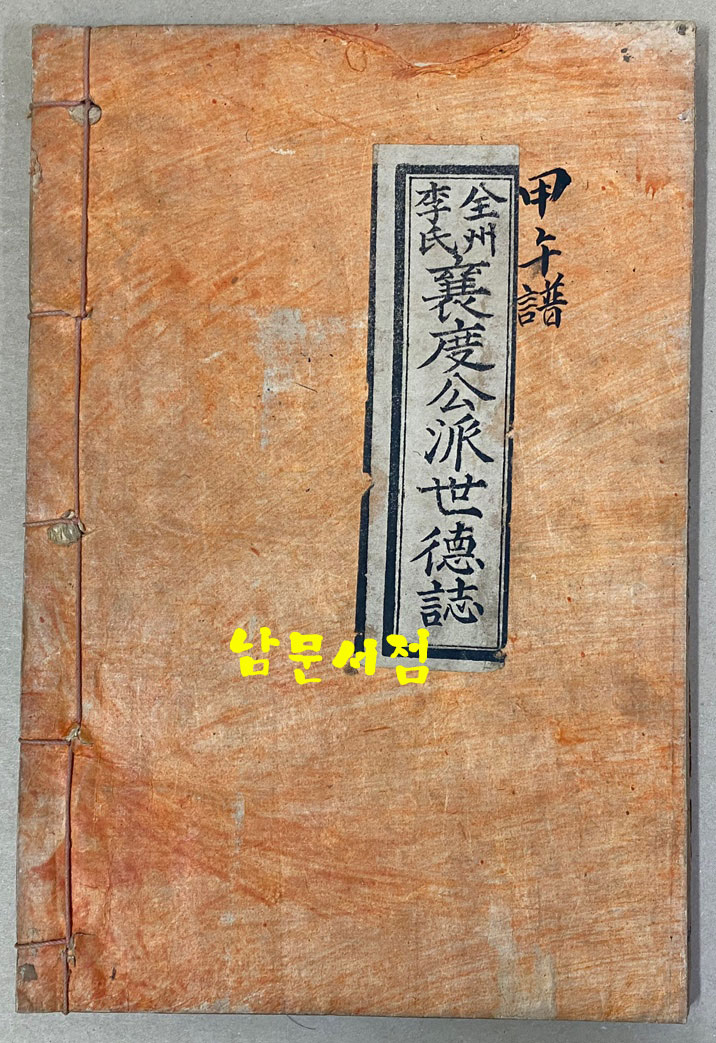 甲午譜
全州
李氏
襄度公派世德誌
남문서점